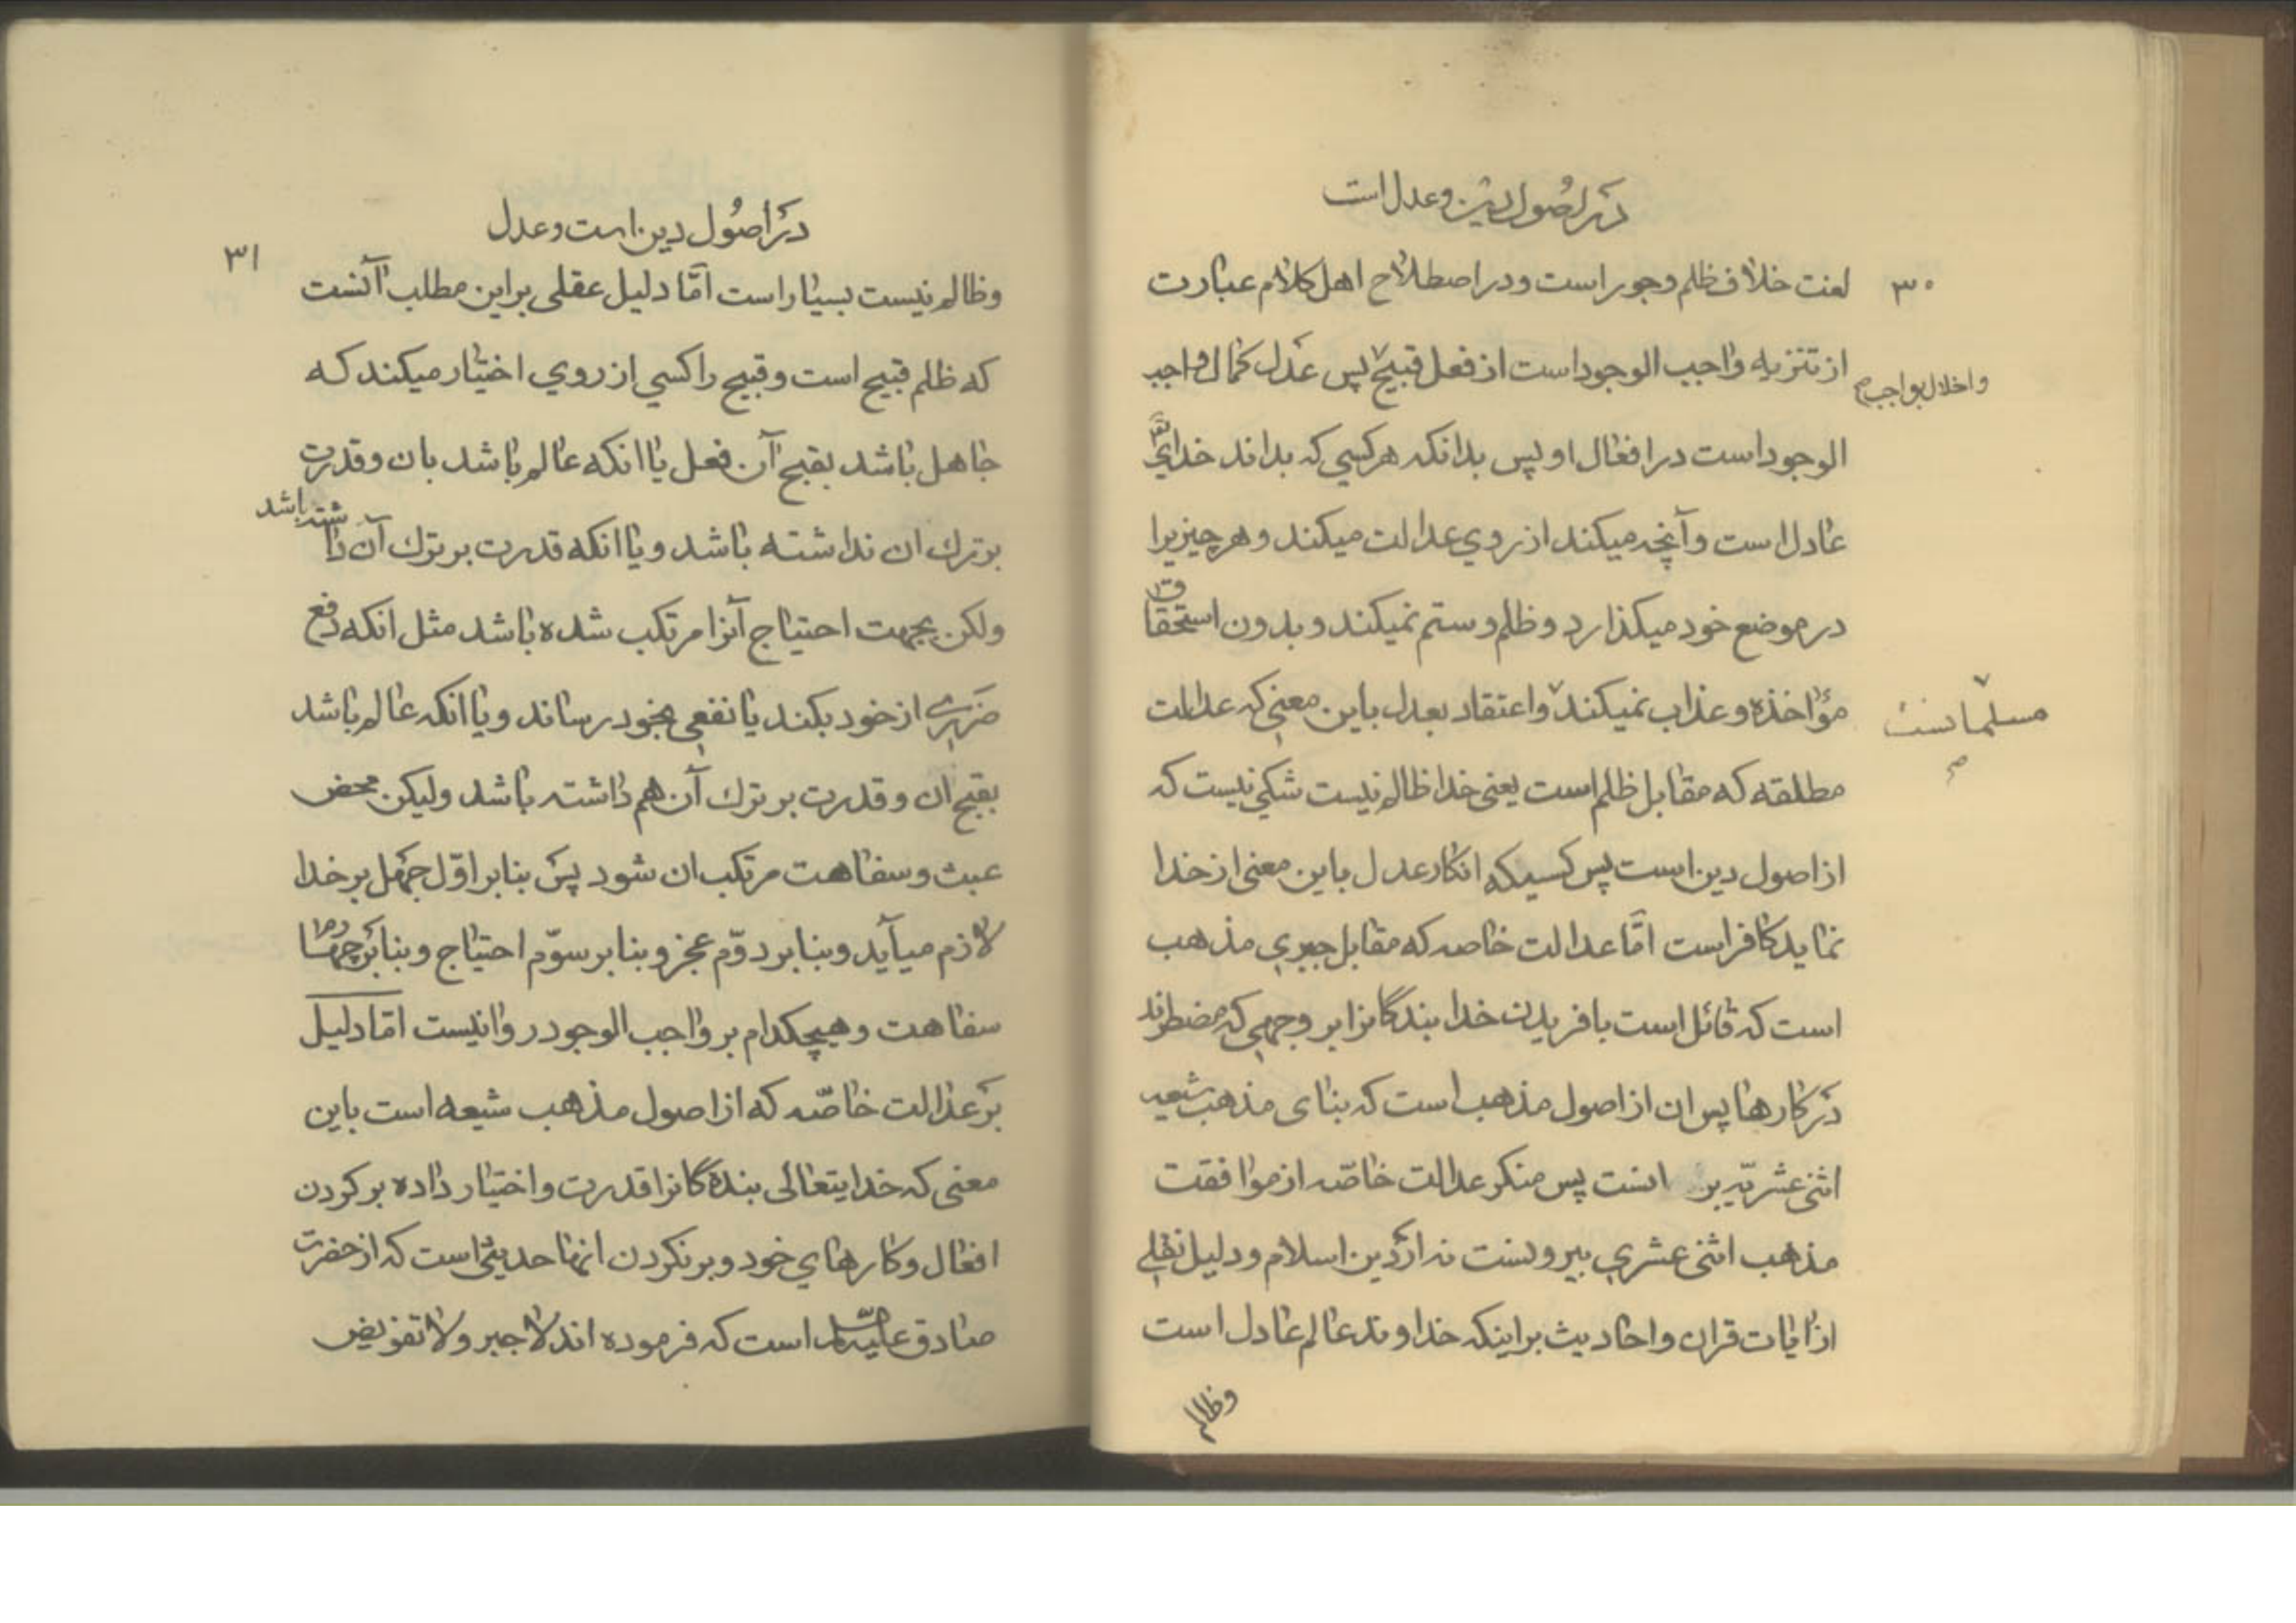 در اصول دین و عدل است
۳۰
لغت خلاف ظلم و جور است و در اصطلاح اهل کلام عبارت
از تنزیه واجب الوجود است از فعل قبیح پس عدل کمال واجب
واخلال بواجب
الوجود است در افعال او پس بدانکه هر کسی که بداند خدای تعا
عادل است و آنچه میکند از روی عدالت میکند و هر چیزیرا
در موضع خود میکذارد و ظلم و ستم نمیکند و بدون استحقاق
مؤاخذه و عذاب نمیکند و اعتقاد بعدل باین معنی که عدالت
مسلمانست
مطلقه که مقابل ظلم است یعنی خدا ظالم نیست شکی نیست که
از اصول دین است پس کسیکه انکار عدل باین معنی از خدا
نماید کافر است امّا عدالت خاصه که مقابل جبری مذهب
است که قائل است بافریدن خدا بندکانرا بر وجهی که مضطرند
در کارها پس ان از اصول مذهب است که بنای مذهب شیعه
اثنی عشریّه بر انست پس منکر عدالت خاصّه از موافقت
مذهب اثنی عشری بیرونست نه از دین اسلام و دلیل نقلی
از ایات قران و احادیث بر اینکه خداوند عالم عادل است
وظالم
در اصول دین است و عدل
۳۱
وظالم نیست بسیار است امّا دلیل عقلی بر این مطلب آنست
که ظلم قبیح است و قبیح را کسی از روی اختیار میکند که
جاهل باشد بقبح آن فعل یا انکه عالم باشد بان و قدرت
بر ترك ان نداشته باشد و یا انکه قدرت بر ترك آن داشته باشد
ولکن بجهت احتیاج آنرا مرتکب شده باشد مثل انکه دفع
ضرری از خود بکند یا نفعی بخود رساند و یا انکه عالم باشد
بقبح ان و قدرت بر ترك آن هم داشته باشد ولیکن محض
عبث و سفاهت مرتکب ان شود پس بنابر اوّل جهل بر خدا
لازم میآید و بنابر دوّم عجز و بنابر سوّم احتیاج و بنابر چهارم
سفاهت و هیچکدام بر واجب الوجود روا نیست امّا دلیل
بر عدالت خاصّه که از اصول مذهب شیعه است باین
معنی که خدایتعالی بندکانرا قدرت و اختیار داده بر کردن
افعال و کارهای خود و بر نکردن انها حدیثی است که از حضرت
صادق علیه السلام است که فرموده اند لا جبر و لا تفویض